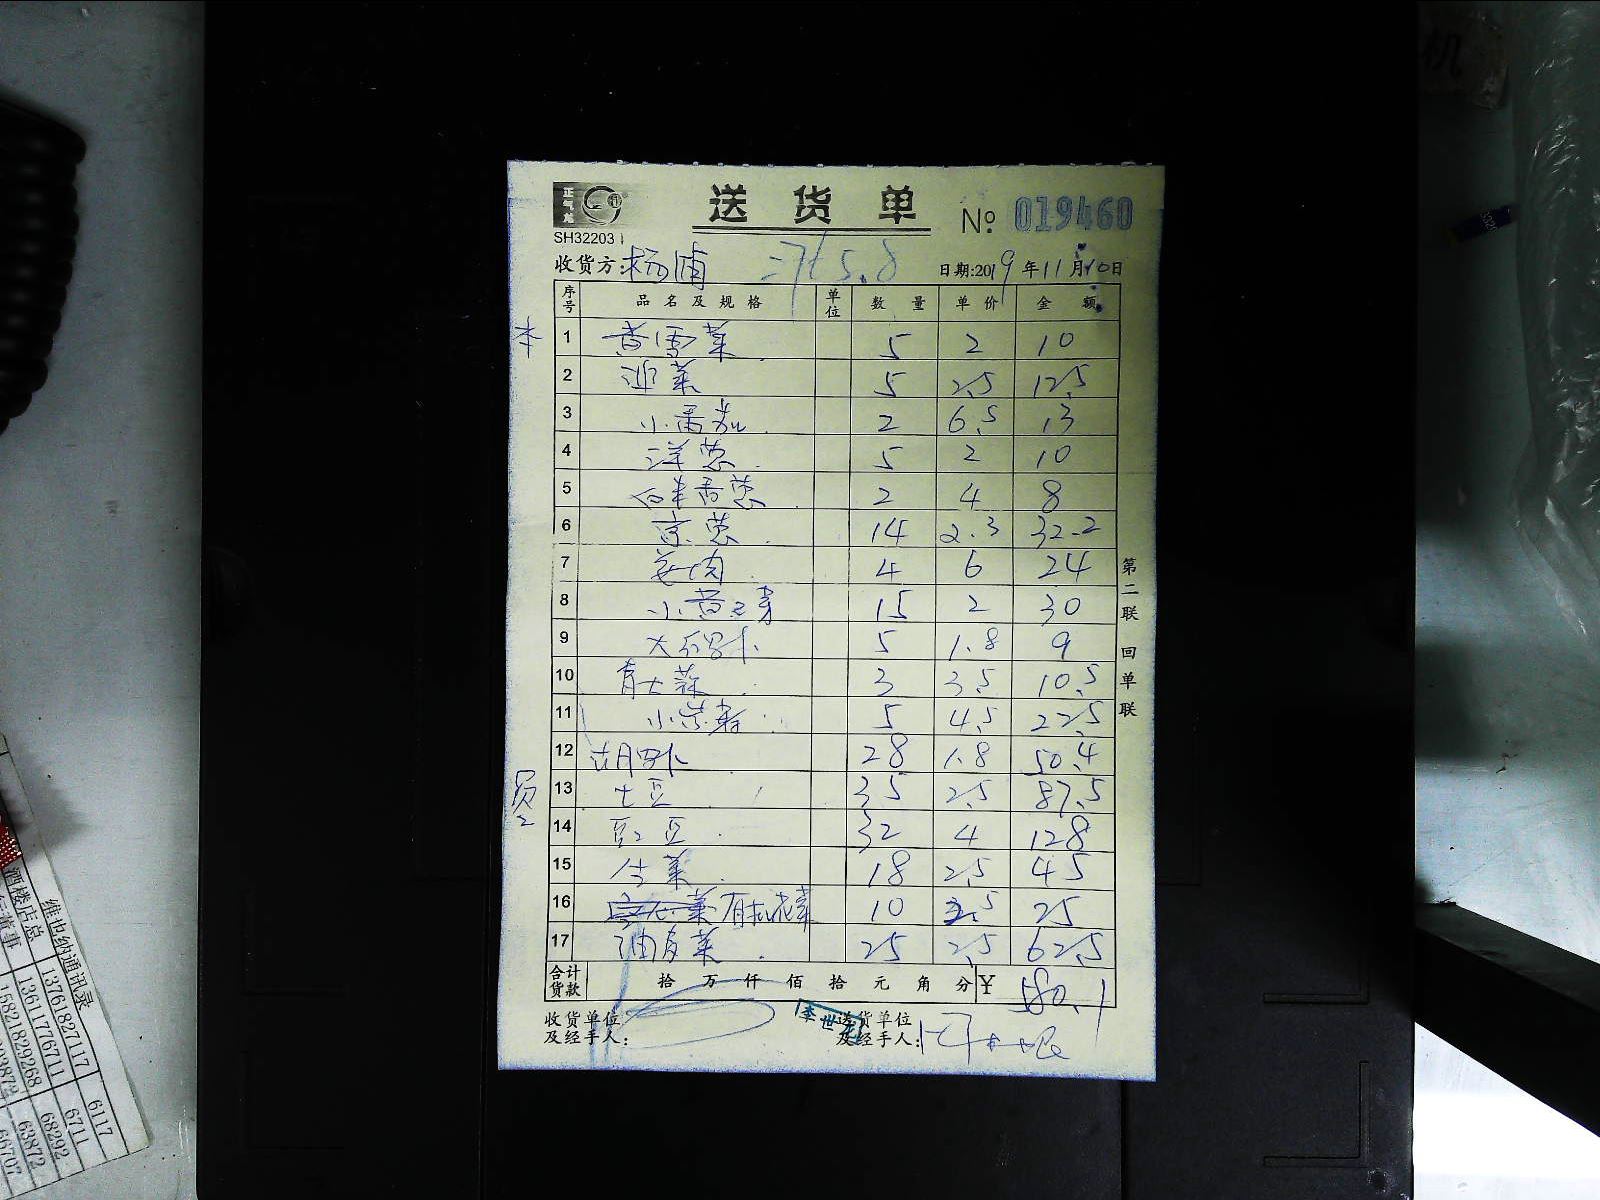 正气龙
送货单 № 019460
SH32203
收货方: 杨浦 日期:2019年11月10日
序号 品名及规格 单位 数量 单价 金额
本
1 黄雪菜 5 2 10
2 5 2.5 12.5
3 小番茄 2 6.5 13
4 洋葱 5 2 10
5 白米香葱 2 4 8
6 京葱 14 2.3 32.2
7 姜肉 4 6 24
8 小黄豆芽 15 2 30
9 大白罗卜 5 1.8 9
10 青大蒜 3 3.5 10.5
11 5 4.5 22.5
12 胡罗卜 28 1.8 50.4
员
13 土豆 35 2.5 87.5
14 豇豆 32 4 128
15 生菜 18 2.5 45
16 有机花菜 10 2.5 25
17 油麦菜 25 2.5 62.5
合计货款 拾 万 仟 佰 拾 元 角 分 ¥ 580.1
收货单位及经手人: 送货单位及经手人:
李世
第二联 回单联
维也纳通讯录
酒楼店总 13761827117 6117
董事 13611776711 6711
15821829268 68292
63872
66707
机